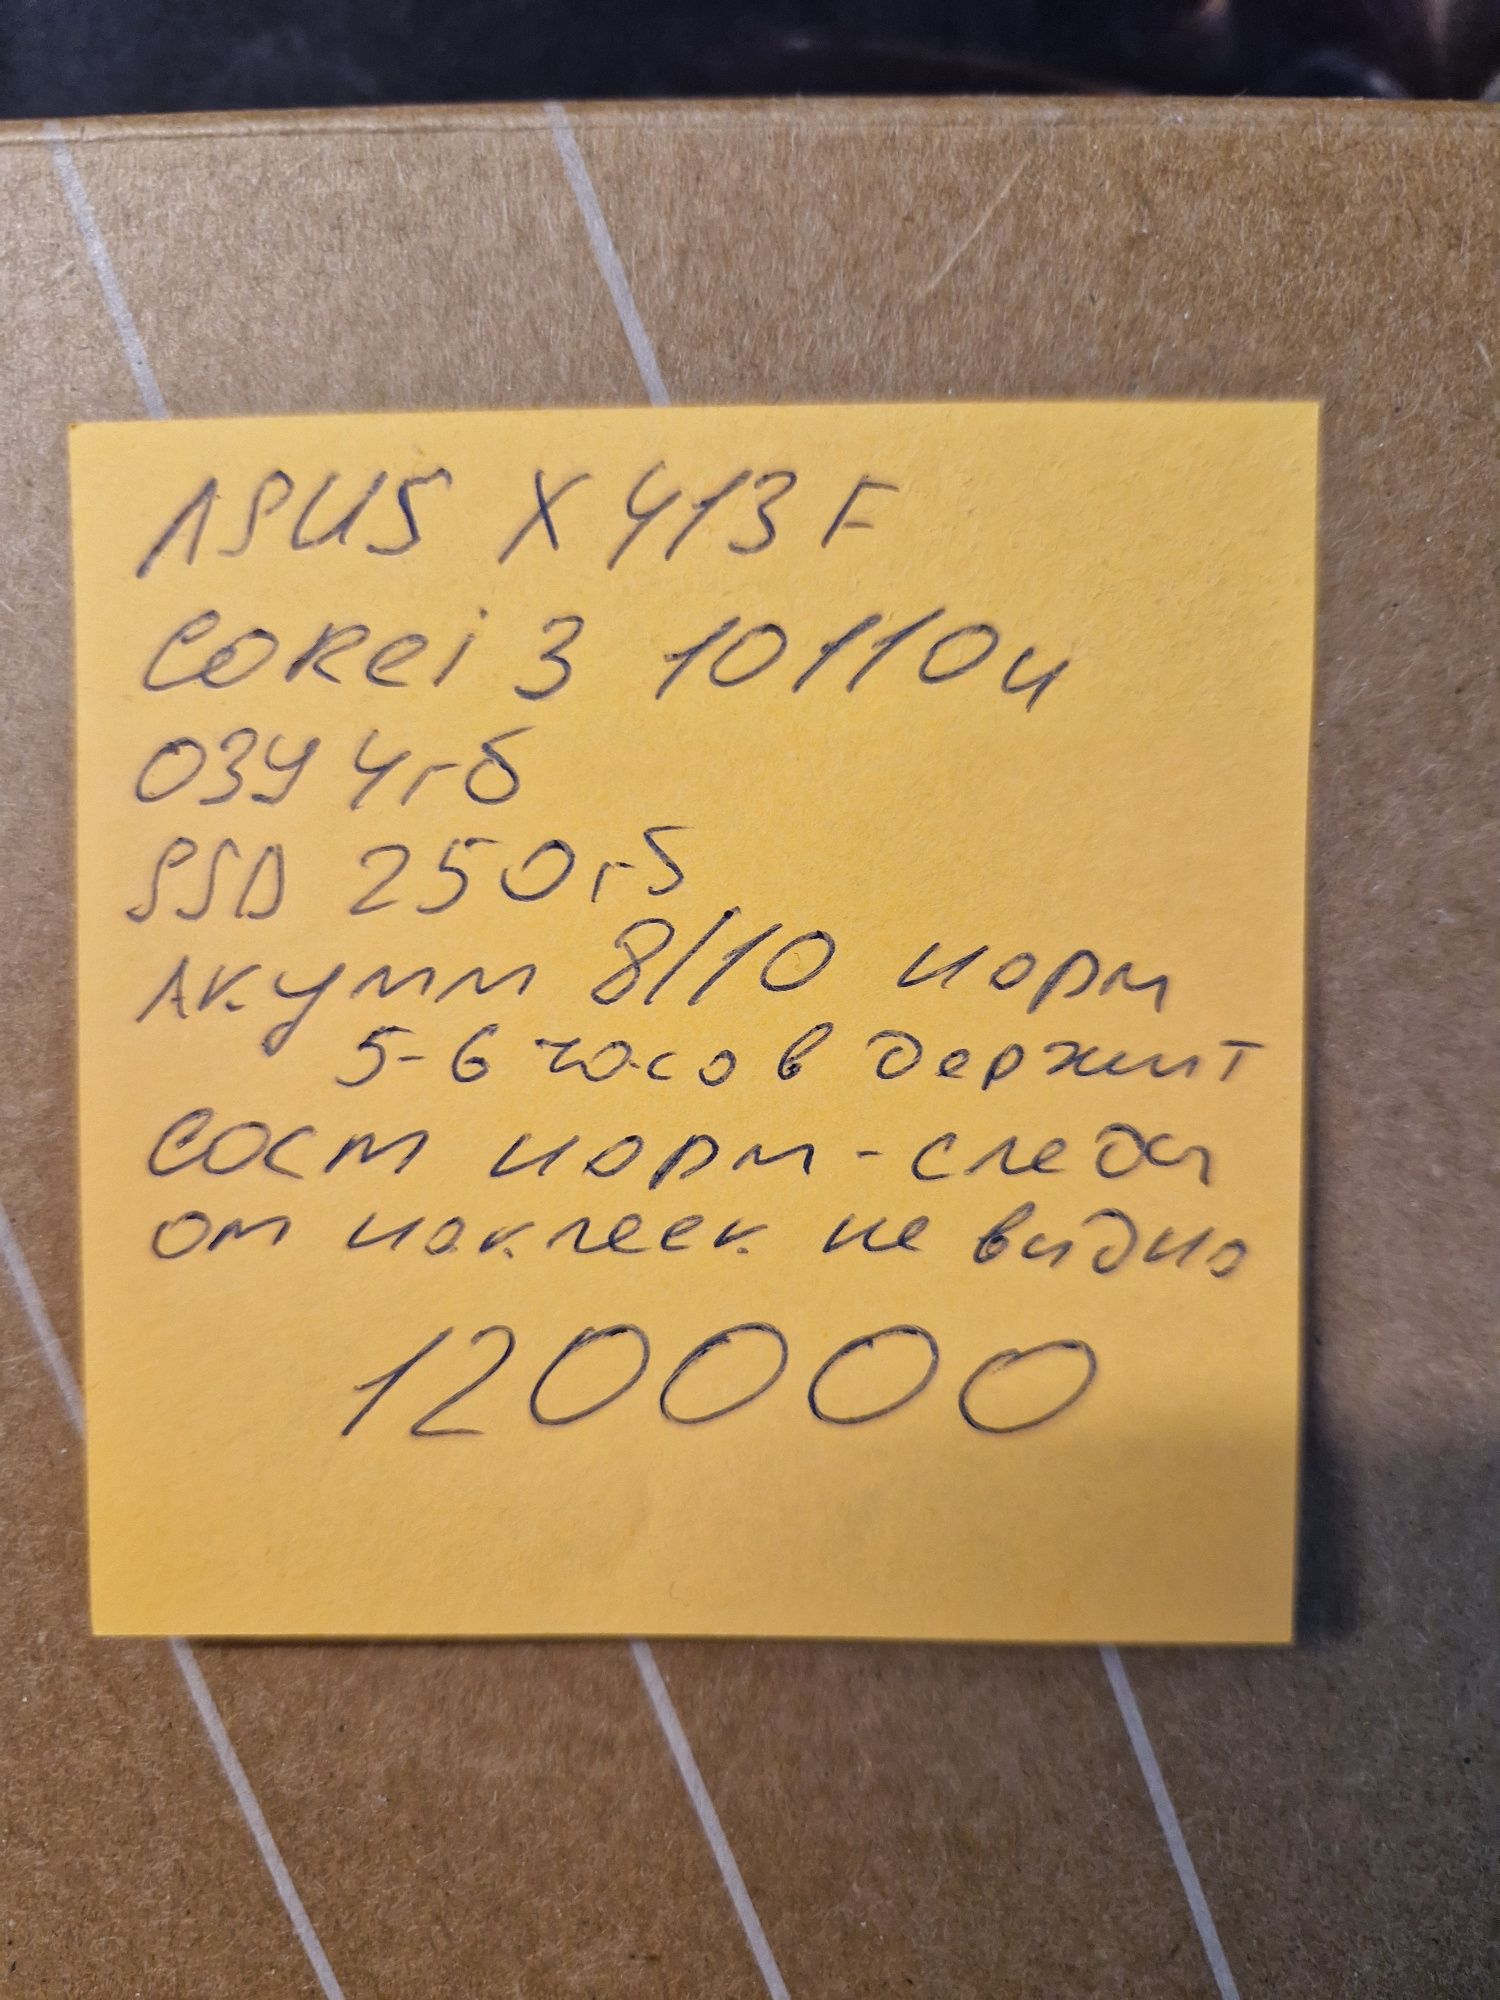 ASUS X413F
Corei3 10110u
ОЗУ 4гб
SSD 250гб
Акумм 8/10 норм
5-6 часов держит
Сост норм - следы
от наклеек не видно
120000